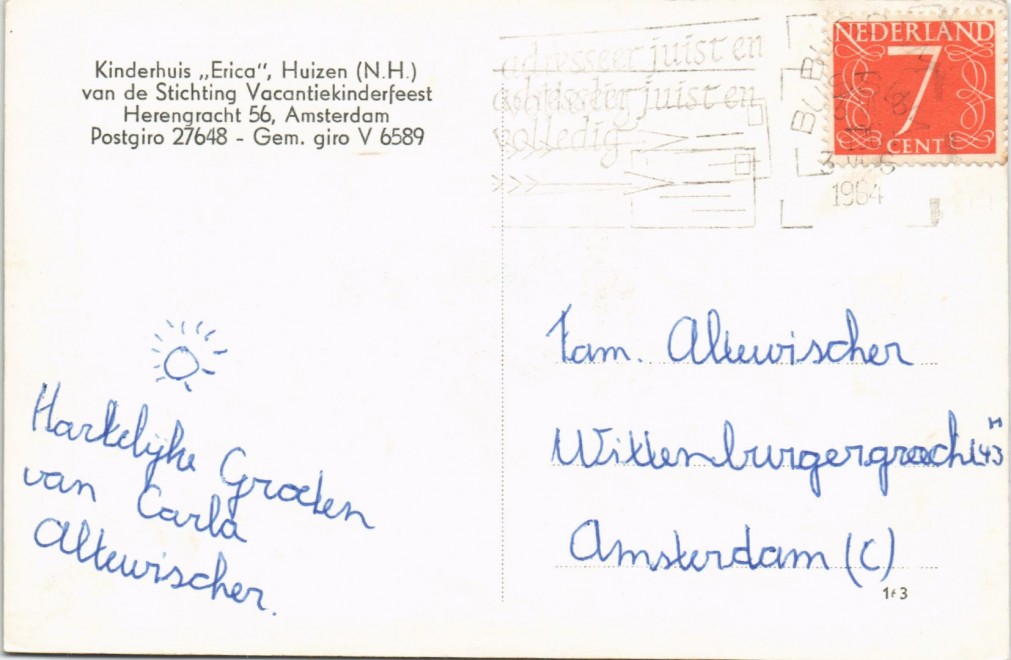 Kinderhuis „Erica“, Huizen (N.H.)
van de Stichting Vacantiekinderfeest
Herengracht 56, Amsterdam
Postgiro 27648 - Gem. giro V 6589
adresseer juist en
adresseer juist en
volledig
BUSSUM
1964
NEDERLAND
7
CENT
Hartelijke Groeten
van Carla
Altewischer.
Fam. Altewischer
Wittenburgergracht 43 H
Amsterdam (C)
1+3